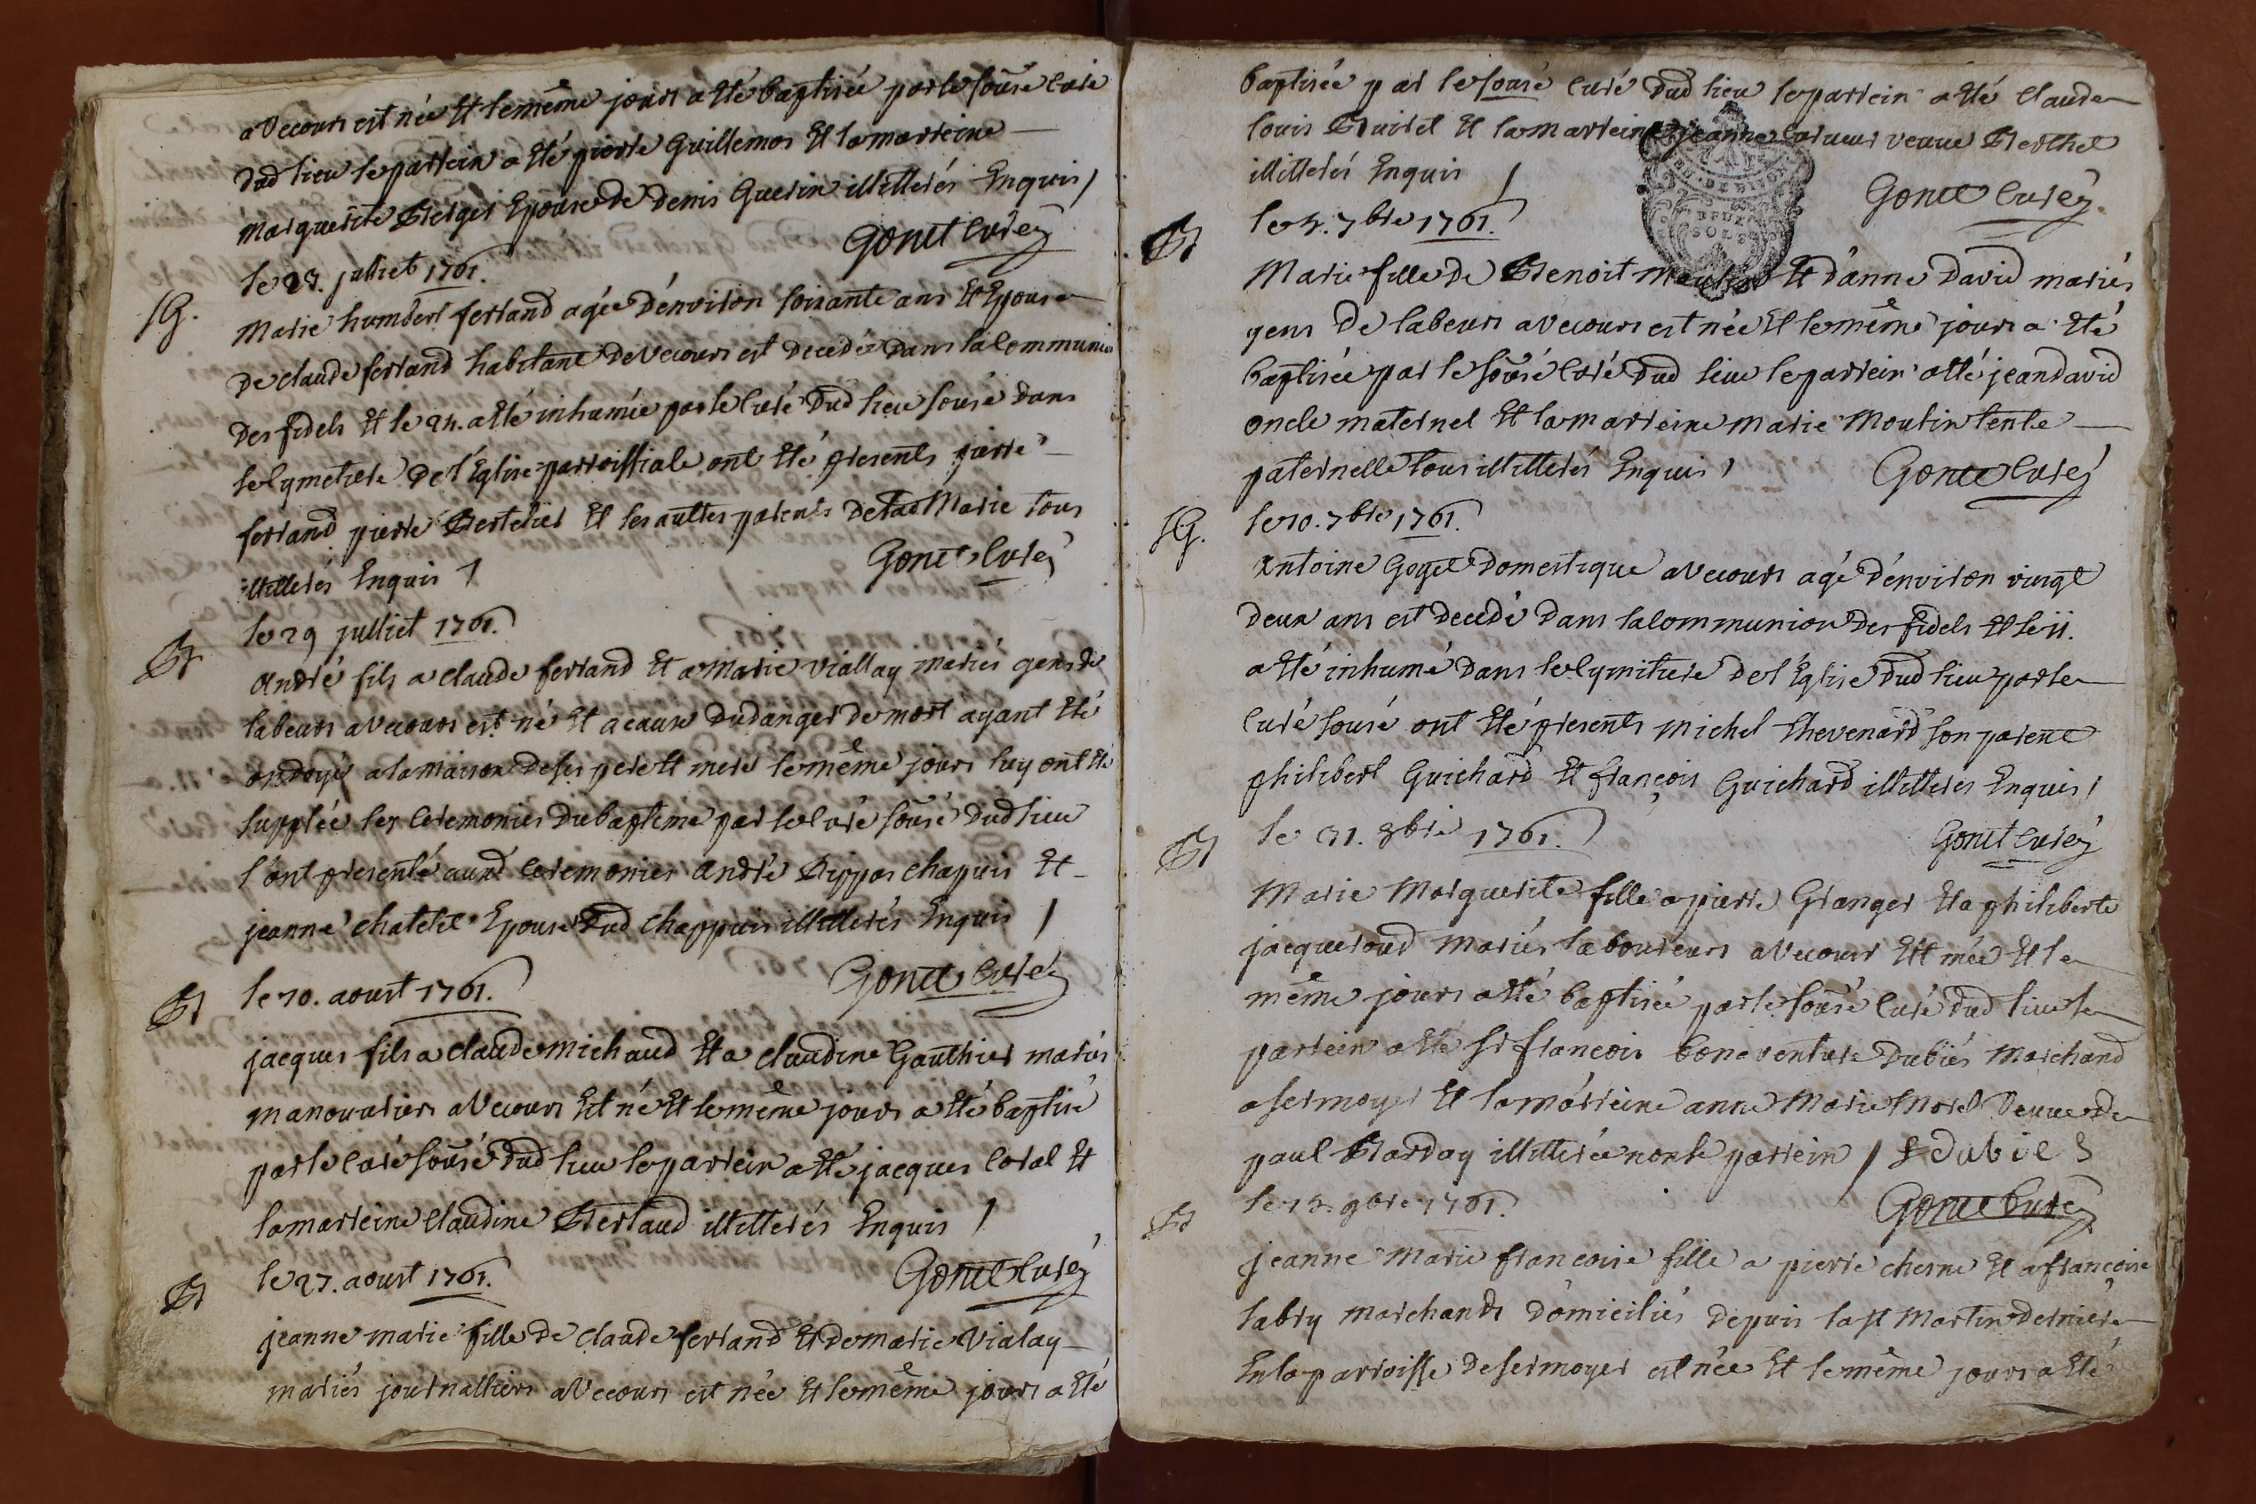 a Vecours est née Et le même jours a Eté baptisée par le sousé curé
dud lieu le parrein a Eté pierre Guillemos Et la marreine
marguerite Berger Epouse de denis Guerin illitterés Enquis /
Gonet curé
le 23. julliet 1761.
SG.
Marie humbert ferrand agée d'environ soisante ans Et Epouse
de claude ferrand habitant de Vecours est decedée dans la Communion
des fidels Et le 24. a Eté inhumée par le curé dud lieu sousé dans
le Cymetiere de l'Eglise parroissiale ont Eté presents pierre
ferrand pierre Bertelier Et les aultres parents de lad Marie tous
illitterés Enquis /
Gonet Curé
le 29 julliet 1761.
Bt
André fils a claude ferrand Et a Marie viallay mariés gens de
labeurs a Vecours est né Et a cause du danger de mort ayant Eté
ondoyé a la maison de ses pere Et mere le même jours luy ont Eté
supplée les Ceremonies du baptême par le Curé sousé dud lieu
l'ont presenté aux d Ceremonies andré Rippos chapuis Et
jeanne chatelet Epouse dud Chappuis illitterés Enquis /
Gonet Curé
le 10. aoust 1761.
Bt
jacques fils a claude michaud Et a claudine Gauthier mariés
manouvriers a Vecours Est né Et le même jours a Eté baptisé
par le Curé sousé dud lieu le parrein a Eté jacques Coral Et
la marreine Claudine Bertaud illitterés Enquis /
Gonet Curé
le 27. aoust 1761.
Bt
jeanne marie fille de claude ferrand Et de marie Vialay
mariés journalliers a Vecours est née Et le même jours a Eté
baptisée par le sousé Curé dud lieu le parrein a Eté claude
louis Bruiret Et la marreine jeanne veuve Berthet
illitterés Enquis /
Gonet Curé
le 4. 7bre 1761.
Bt
Marie fille de Benoit Et d'anne David mariés
gens de labeurs a Vecours est née Et le même jours a Eté
baptisée par le sousé Curé dud lieu le parrein a Eté jean david
oncle maternel Et la marreine marie Moutin tente
paternelle tous illitterés Enquis /
Gonet Curé
le 10. 7bre 1761.
SG.
Antoine Goyet Domestique a Vecours agé d'environ vingt
deux ans est decedé dans la Communion des fidels Et le 11.
a Eté inhumé dans le Cymitiere de l'Eglise dud lieu par le
Curé sousé ont Eté presents michel thevenard son parent
philibert Guichard Et françois Guichard illitteres Enquis /
Gonet curé
le 21. 8bre 1761.
Bt
Marie Marguerite fille a pierre Granger Et a philiberte
jacqueroud mariés laboureurs a Vecours Est née Et le
même jours a Eté baptisée par le sousé Curé dud lieu le
parrein a Eté Sr françois bonaventure Dubiés Marchand
a sermoyer Et la marreine anne Marie Morel Veuve de
paul Barday illitterée non le parrein /
Gonet Curé
le 14. 9bre 1761.
Bt
jeanne Marie françoise fille a pierre cherne Et a françoise
labry marchands domiciliés depuis la st Martin derniere
En la parroisse de sermoyer est née Et le même jours a Eté